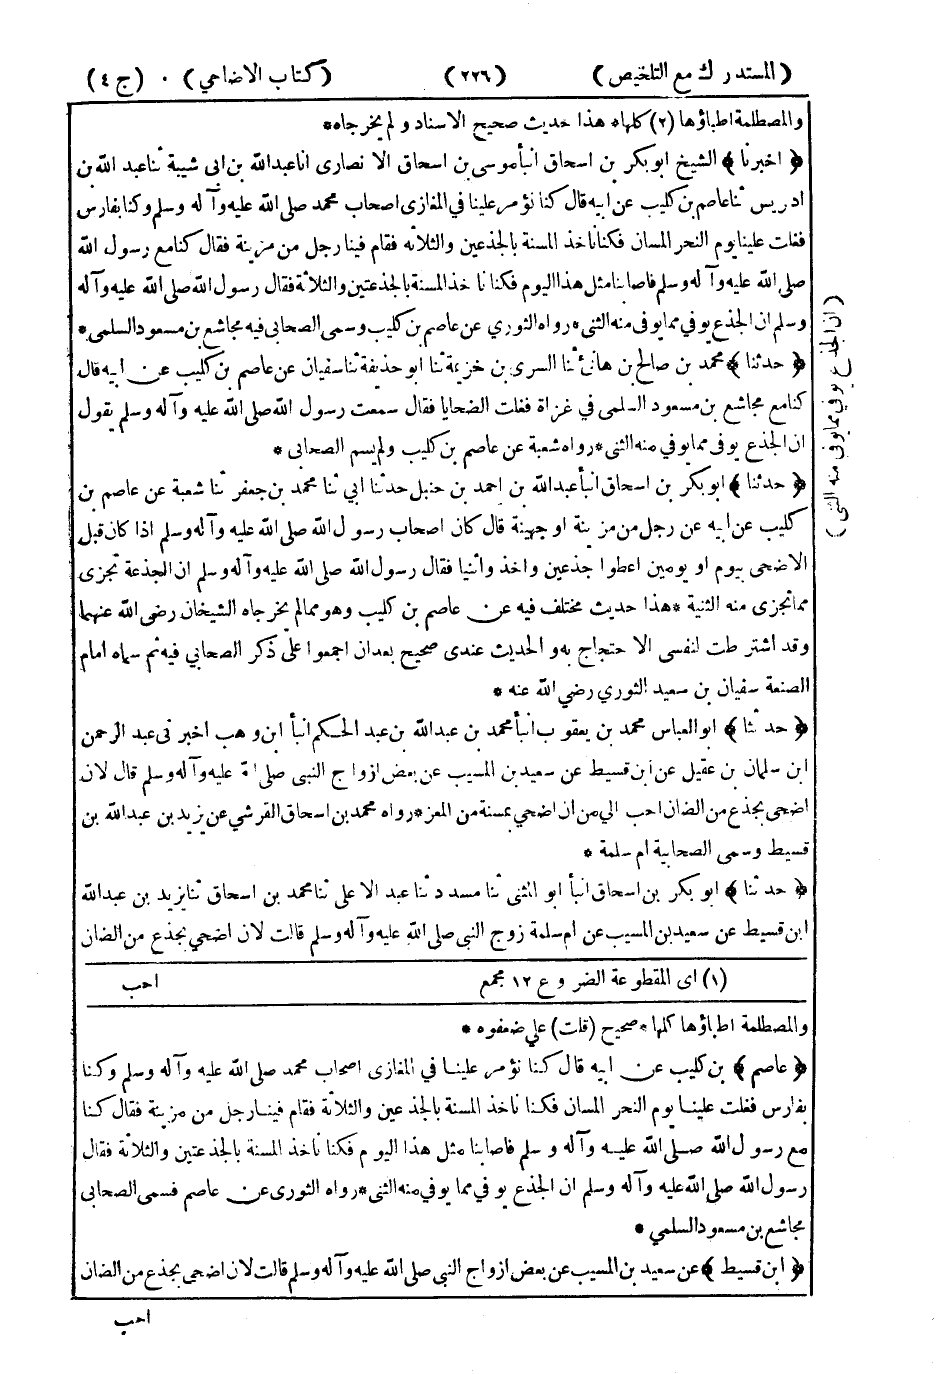 (المستدرك مع التلخيص) (٢٢٦) (كتاب الاضاحي) . (ج ٤)
والمصطلمة اطباؤها (٢) كلها* هذا حديث صحيح الاسناد ولم يخرجاه*
﴿ اخبرنا ﴾ الشيخ ابو بكر بن اسحاق انبأ موسى بن اسحاق الانصارى انا عبدالله بن ابى شيبة ثنا عبد الله بن
ادريس ثنا عاصم بن كليب عن ابيه قال كنا نؤمر علينا في المغازى اصحاب محمد صلى الله عليه وآله وسلم وكنا بفارس
فغلت علينا يوم النحر المسان فكنا نأخذ المسنة بالجذعين والثلاثه فقام فينا رجل من مزينة فقال كنا مع رسول الله
صلى الله عليه وآله وسلم فاصابنا مثل هذا اليوم فكنا نأخذ المسنة بالجذعتين والثلاثة فقال رسول الله صلى الله عليه وآله
وسلم ان الجذع يوفي مما يوفى منه الثنى* رواه الثوري عن عاصم بن كليب وسمى الصحابى فيه مجاشع بن مسعود السلمى*
﴿ حدثنا ﴾ محمد بن صالح بن هانئ ثنا السرى بن خزيمة ثنا ابو حذيفة ثنا سفيان عن عاصم بن كليب عن ابيه قال
كنا مع مجاشع بن مسعود السلمى في غزاة فغلت الضحايا فقال سمعت رسول الله صلى الله عليه وآله وسلم يقول
ان الجذع يوفى مما يوفي منه الثنى* رواه شعبة عن عاصم بن كليب ولم يسم الصحابى*
﴿ حدثنا ﴾ ابو بكر بن اسحاق انبأ عبدالله بن احمد بن حنبل حدثنا ابي ثنا محمد بن جعفر ثنا شعبة عن عاصم بن
كليب عن ابيه عن رجل من مزينة او جهينة قال كان اصحاب رسول الله صلى الله عليه وآله وسلم اذا كان قبل
الاضحى بيوم او يومين اعطوا جذعين واخذوا ثنيا فقال رسول الله صلى الله عليه وآله وسلم ان الجذعة تجزى
مما تجزى منه الثنية* هذا حديث مختلف فيه عن عاصم بن كليب وهو مما لم يخرجاه الشيخان رضى الله عنهما
وقد اشترطت لنفسى الاحتجاج به والحديث عندى صحيح بعد ان اجمعوا على ذكر الصحابي فيه ثم سماه امام
الصنعة سفيان بن سعيد الثوري رضي الله عنه*
﴿ حدثنا ﴾ ابو العباس محمد بن يعقوب انبأ محمد بن عبدالله بن عبد الحكم انبأ ابن وهب اخبرنى عبد الرحمن
ابن سلمان بن عقيل عن ابن قسيط عن سعيد بن المسيب عن بعض ازواج النبى صلى الله عليه وآله وسلم قال لان
اضحى بجذع من الضان احب الي من ان اضحي بمسنة من المعز* رواه محمد بن اسحاق القرشي عن يزيد بن عبدالله بن
قسيط وسمى الصحابية ام سلمة*
﴿ حدثنا ﴾ ابو بكر بن اسحاق انبأ ابو المثنى ثنا مسدد ثنا عبد الاعلى ثنا محمد بن اسحاق ثنا يزيد بن عبدالله
ابن قسيط عن سعيد بن المسيب عن ام سلمة زوج النبى صلى الله عليه وآله وسلم قالت لان اضحي بجذع من الضان
(١) اى المقطوعة الضروع ١٢ مجمع
احب
والمصطلمة اطباؤها كلها* صحيح (قلت) علي ضعفوه*
﴿ عاصم ﴾ بن كليب عن ابيه قال كنا نؤمر علينا في المغازى اصحاب محمد صلى الله عليه وآله وسلم وكنا
بفارس فغلت علينا يوم النحر المسان فكنا نأخذ المسنة بالجذعين والثلاثة فقام فينا رجل من مزينة فقال كنا
مع رسول الله صلى الله عليه وآله وسلم فاصابنا مثل هذا اليوم فكنا نأخذ المسنة بالجذعتين والثلاثة فقال
رسول الله صلى الله عليه وآله وسلم ان الجذع يوفي مما يوفي منه الثنى* رواه الثورى عن عاصم فسمى الصحابى
مجاشع بن مسعود السلمي*
﴿ ابن قسيط ﴾ عن سعيد بن المسيب عن بعض ازواج النبى صلى الله عليه وآله وسلم قالت لان اضحى بجذع من الضان
احب
(ان الجذع يوفي مما يوفى منه الثنى)